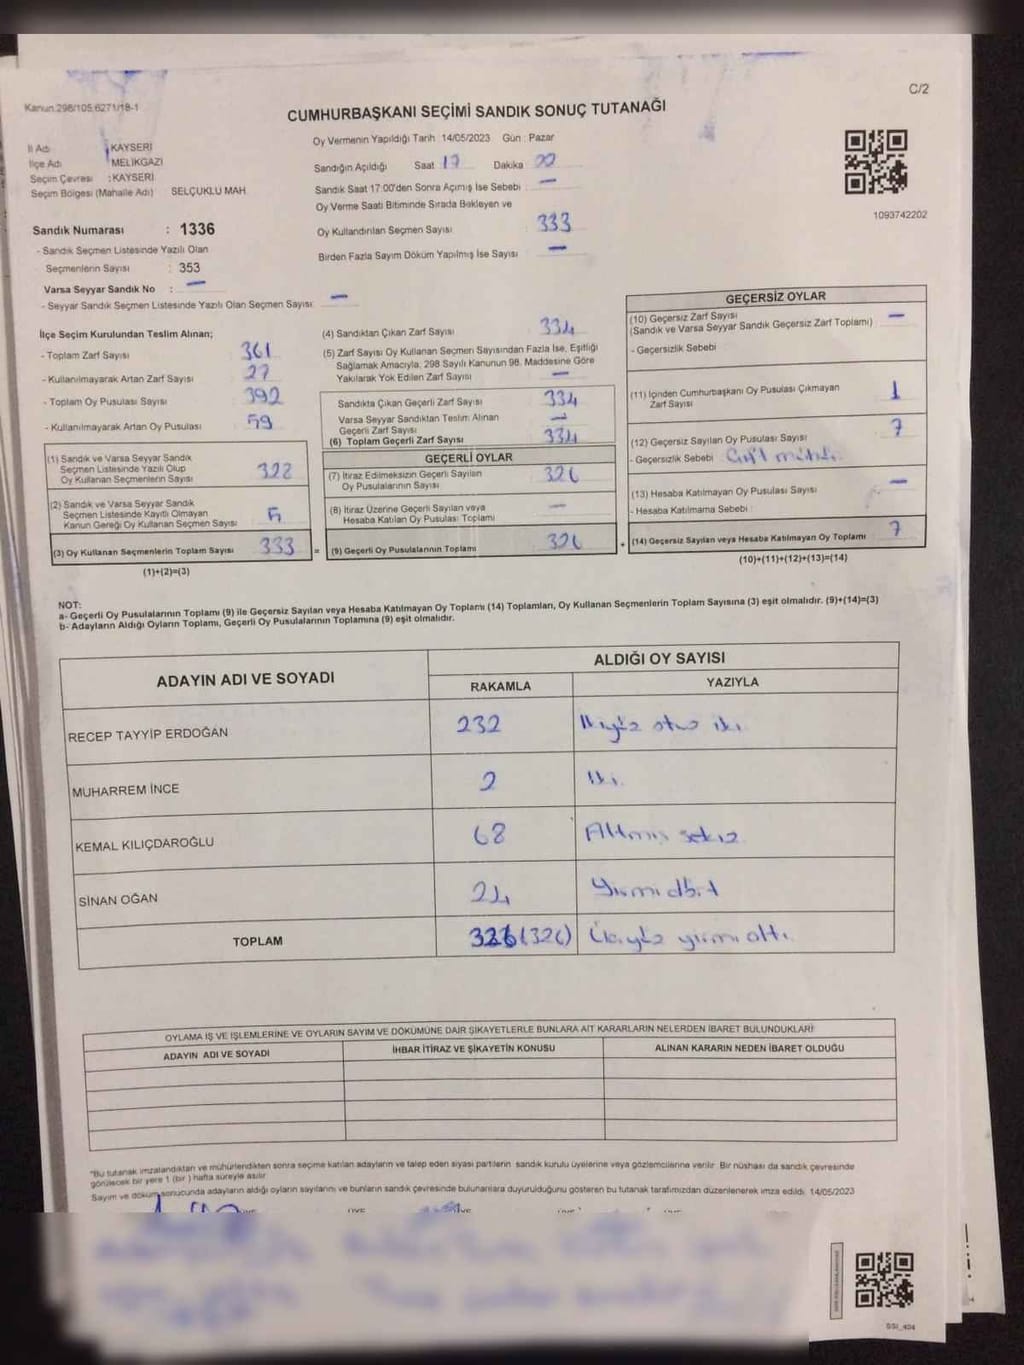 C/2
Kanun.298/105,6271/18-1
CUMHURBAŞKANI SEÇİMİ SANDIK SONUÇ TUTANAĞI
Oy Vermenin Yapıldığı Tarih 14/05/2023 Gün : Pazar
İl Adı : KAYSERİ
İlçe Adı : MELİKGAZİ
Seçim Çevresi : KAYSERİ
Seçim Bölgesi (Mahalle Adı) SELÇUKLU MAH.
Sandığın Açıldığı Saat 17 Dakika 00
Sandık Saat 17.00'den Sonra Açımış İse Sebebi —
Oy Verme Saati Bitiminde Sırada Bekleyen ve
Oy Kullandırılan Seçmen Sayısı : 333
Birden Fazla Sayım Döküm Yapılmış İse Sayısı —
1093742202
Sandık Numarası : 1336
- Sandık Seçmen Listesinde Yazılı Olan
Seçmenlerin Sayısı : 353
Varsa Seyyar Sandık No : —
- Seyyar Sandık Seçmen Listesinde Yazılı Olan Seçmen Sayısı: —
İlçe Seçim Kurulundan Teslim Alınan;
- Toplam Zarf Sayısı 361
- Kullanılmayarak Artan Zarf Sayısı 27
- Toplam Oy Pusulası Sayısı 392
- Kullanılmayarak Artan Oy Pusulası 59
(1) Sandık ve Varsa Seyyar Sandık
Seçmen Listesinde Yazılı Olup
Oy Kullanan Seçmenlerin Sayısı 328
(2) Sandık ve Varsa Seyyar Sandık
Seçmen Listesinde Kayıtlı Olmayan
Kanun Gereği Oy Kullanan Seçmen Sayısı 5
(3) Oy Kullanan Seçmenlerin Toplam Sayısı 333 =
(1)+(2)=(3)
(4) Sandıktan Çıkan Zarf Sayısı 334
(5) Zarf Sayısı Oy Kullanan Seçmen Sayısından Fazla İse, Eşitliği
Sağlamak Amacıyla, 298 Sayılı Kanunun 98. Maddesine Göre
Yakılarak Yok Edilen Zarf Sayısı —
Sandıkta Çıkan Geçerli Zarf Sayısı 334
Varsa Seyyar Sandıktan Teslim Alınan
Geçerli Zarf Sayısı —
(6) Toplam Geçerli Zarf Sayısı 334
GEÇERLİ OYLAR
(7) İtiraz Edilmeksizin Geçerli Sayılan
Oy Pusulalarının Sayısı 326
(8) İtiraz Üzerine Geçerli Sayılan veya
Hesaba Katılan Oy Pusulası Toplamı —
(9) Geçerli Oy Pusulalarının Toplamı 326 +
GEÇERSİZ OYLAR
(10) Geçersiz Zarf Sayısı
(Sandık ve Varsa Seyyar Sandık Geçersiz Zarf Toplamı) —
- Geçersizlik Sebebi
(11) İçinden Cumhurbaşkanı Oy Pusulası Çıkmayan
Zarf Sayısı 1
(12) Geçersiz Sayılan Oy Pusulası Sayısı 7
- Geçersizlik Sebebi Çift
(13) Hesaba Katılmayan Oy Pusulası Sayısı —
- Hesaba Katılmama Sebebi :
(14) Geçersiz Sayılan veya Hesaba Katılmayan Oy Toplamı 7
(10)+(11)+(12)+(13)=(14)
NOT:
a- Geçerli Oy Pusulalarının Toplamı (9) ile Geçersiz Sayılan veya Hesaba Katılmayan Oy Toplamı (14) Toplamları, Oy Kullanan Seçmenlerin Toplam Sayısına (3) eşit olmalıdır. (9)+(14)=(3)
b- Adayların Aldığı Oyların Toplamı, Geçerli Oy Pusulalarının Toplamına (9) eşit olmalıdır.
ADAYIN ADI VE SOYADI
ALDIĞI OY SAYISI
RAKAMLA YAZIYLA
RECEP TAYYİP ERDOĞAN 232 İkiyüz otuz iki
MUHARREM İNCE 2 İki
KEMAL KILIÇDAROĞLU 68 Altmış sekiz
SİNAN OĞAN 24 Yirmidört
TOPLAM 326 (326) Üçyüz yirmi altı
OYLAMA İŞ VE İŞLEMLERİNE VE OYLARIN SAYIM VE DÖKÜMÜNE DAİR ŞİKAYETLERLE BUNLARA AİT KARARLARIN NELERDEN İBARET BULUNDUKLARI
ADAYIN ADI VE SOYADI İHBAR İTİRAZ VE ŞİKAYETİN KONUSU ALINAN KARARIN NEDEN İBARET OLDUĞU
"Bu tutanak imzalandıktan ve mühürlendikten sonra seçime katılan adayların ve talep eden siyasi partilerin sandık kurulu üyelerine veya gözlemcilerine verilir. Bir nüshası da sandık çevresinde
görülecek bir yere 1 (bir ) hafta süreyle asılır.
Sayım ve döküm sonucunda adayların aldığı oyların sayılarını ve bunların sandık çevresinde bulunanlara duyurulduğunu gösteren bu tutanak tarafımızdan düzenlenerek imza edildi. 14/05/2023